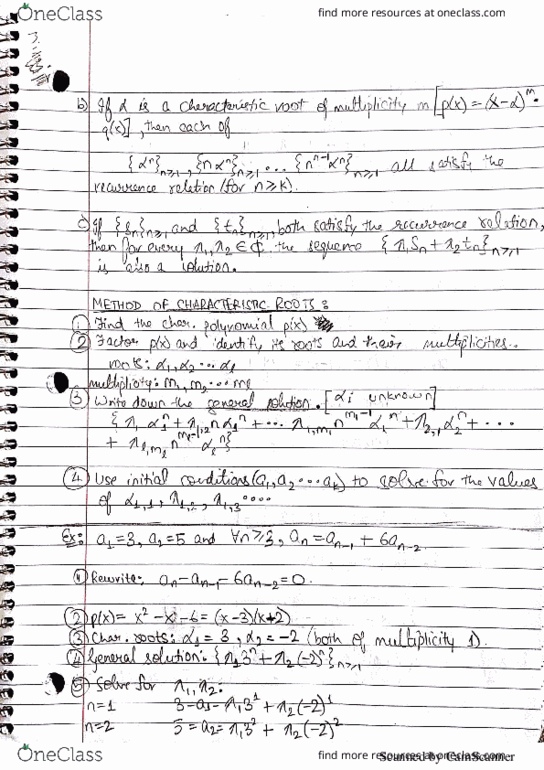 OneClass
find more resources at oneclass.com
b) If α is a characteristic root of multiplicity m [p(x) = (x-α)^m.
q(x)], then each of
{α^n}_{n≥1}, {nα^n}_{n≥1} ... {n^{n-1}α^n}_{n≥1} all satisfy the
recurrence relation (for n≥K).
c) If {s_n}_{n≥1} and {t_n}_{n≥1}, both satisfy the recurrence relation,
then for every λ_1, λ_2 ∈ ₵ the sequence {λ_1 S_n + λ_2 t_n}_{n≥1}
is also a solution.
METHOD OF CHARACTERISTIC ROOTS:
① Find the char. polynomial p(x)
② Factor p(x) and identify its roots and their multiplicities.
roots: α_1, α_2 ... α_l
multiplicity: m_1, m_2 ... m_l
③ Write down the general solution. [αi unknown]
{λ_{1,1} α_1^n + λ_{1,2} n α_1^n + ... λ_{1,m_1} n^{m_1-1} α_1^n + λ_{2,1} α_2^n + ...
+ λ_{l,m_l} n^{m_l-1} α_l^n}
④ Use initial conditions (a_1, a_2 ... a_k) to solve for the values
of α_{1,1}, λ_{1,2}, λ_{1,3} ....
Ex: a_1=3, a_2=5 and ∀n≥3, a_n = a_{n-1} + 6a_{n-2}
① Rewrite: a_n - a_{n-1} - 6a_{n-2} = 0.
② p(x) = x^2 - x - 6 = (x-3)(x+2)
③ Char. roots: α_1 = 3, α_2 = -2 (both of multiplicity 1).
④ General solution: {λ_1 3^n + λ_2 (-2)^n}_{n≥1}
⑤ Solve for λ_1, λ_2:
n=1 3=a_1=λ_1 3^1 + λ_2 (-2)^1
n=2 5=a_2=λ_1 3^2 + λ_2 (-2)^2
OneClass
find more resources at oneclass.com
Scanned by CamScanner